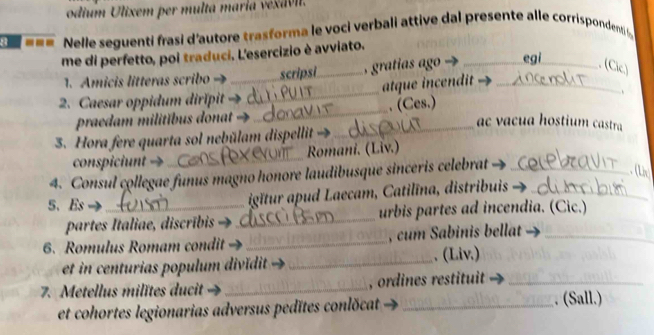 odium Ulixem per multa maria vexavit.
8 Nelle seguenti frasi d'autore trasforma le voci verbali attive dal presente alle corrispondenti fo
me di perfetto, poi traduci. L'esercizio è avviato.
1. Amicis litteras scribo → scripsi , gratias ago → egi . (Cic.)
2. Caesar oppidum dirĭpit → diripuit atque incendit → incendit ,
praedam militibus donat → donavit . (Ces.)
3. Hora fere quarta sol nebŭlam dispellit → dispulit ac vacua hostium castra
conspiciunt → conspexerunt Romani. (Liv.)
4. Consul collegae funus magno honore laudibusque sinceris celebrat → celebravit . (Liv
5. Es → fuisti igĭtur apud Laecam, Catilina, distribuis →
partes Italiae, discribis → urbis partes ad incendia. (Cic.)
6. Romulus Romam condit → , cum Sabinis bellat →
et in centurias populum divĭdit → . (Liv.)
7. Metellus milĭtes ducit → , ordines restituit →
et cohortes legionarias adversus pedĭtes conlŏcat → . (Sall.)